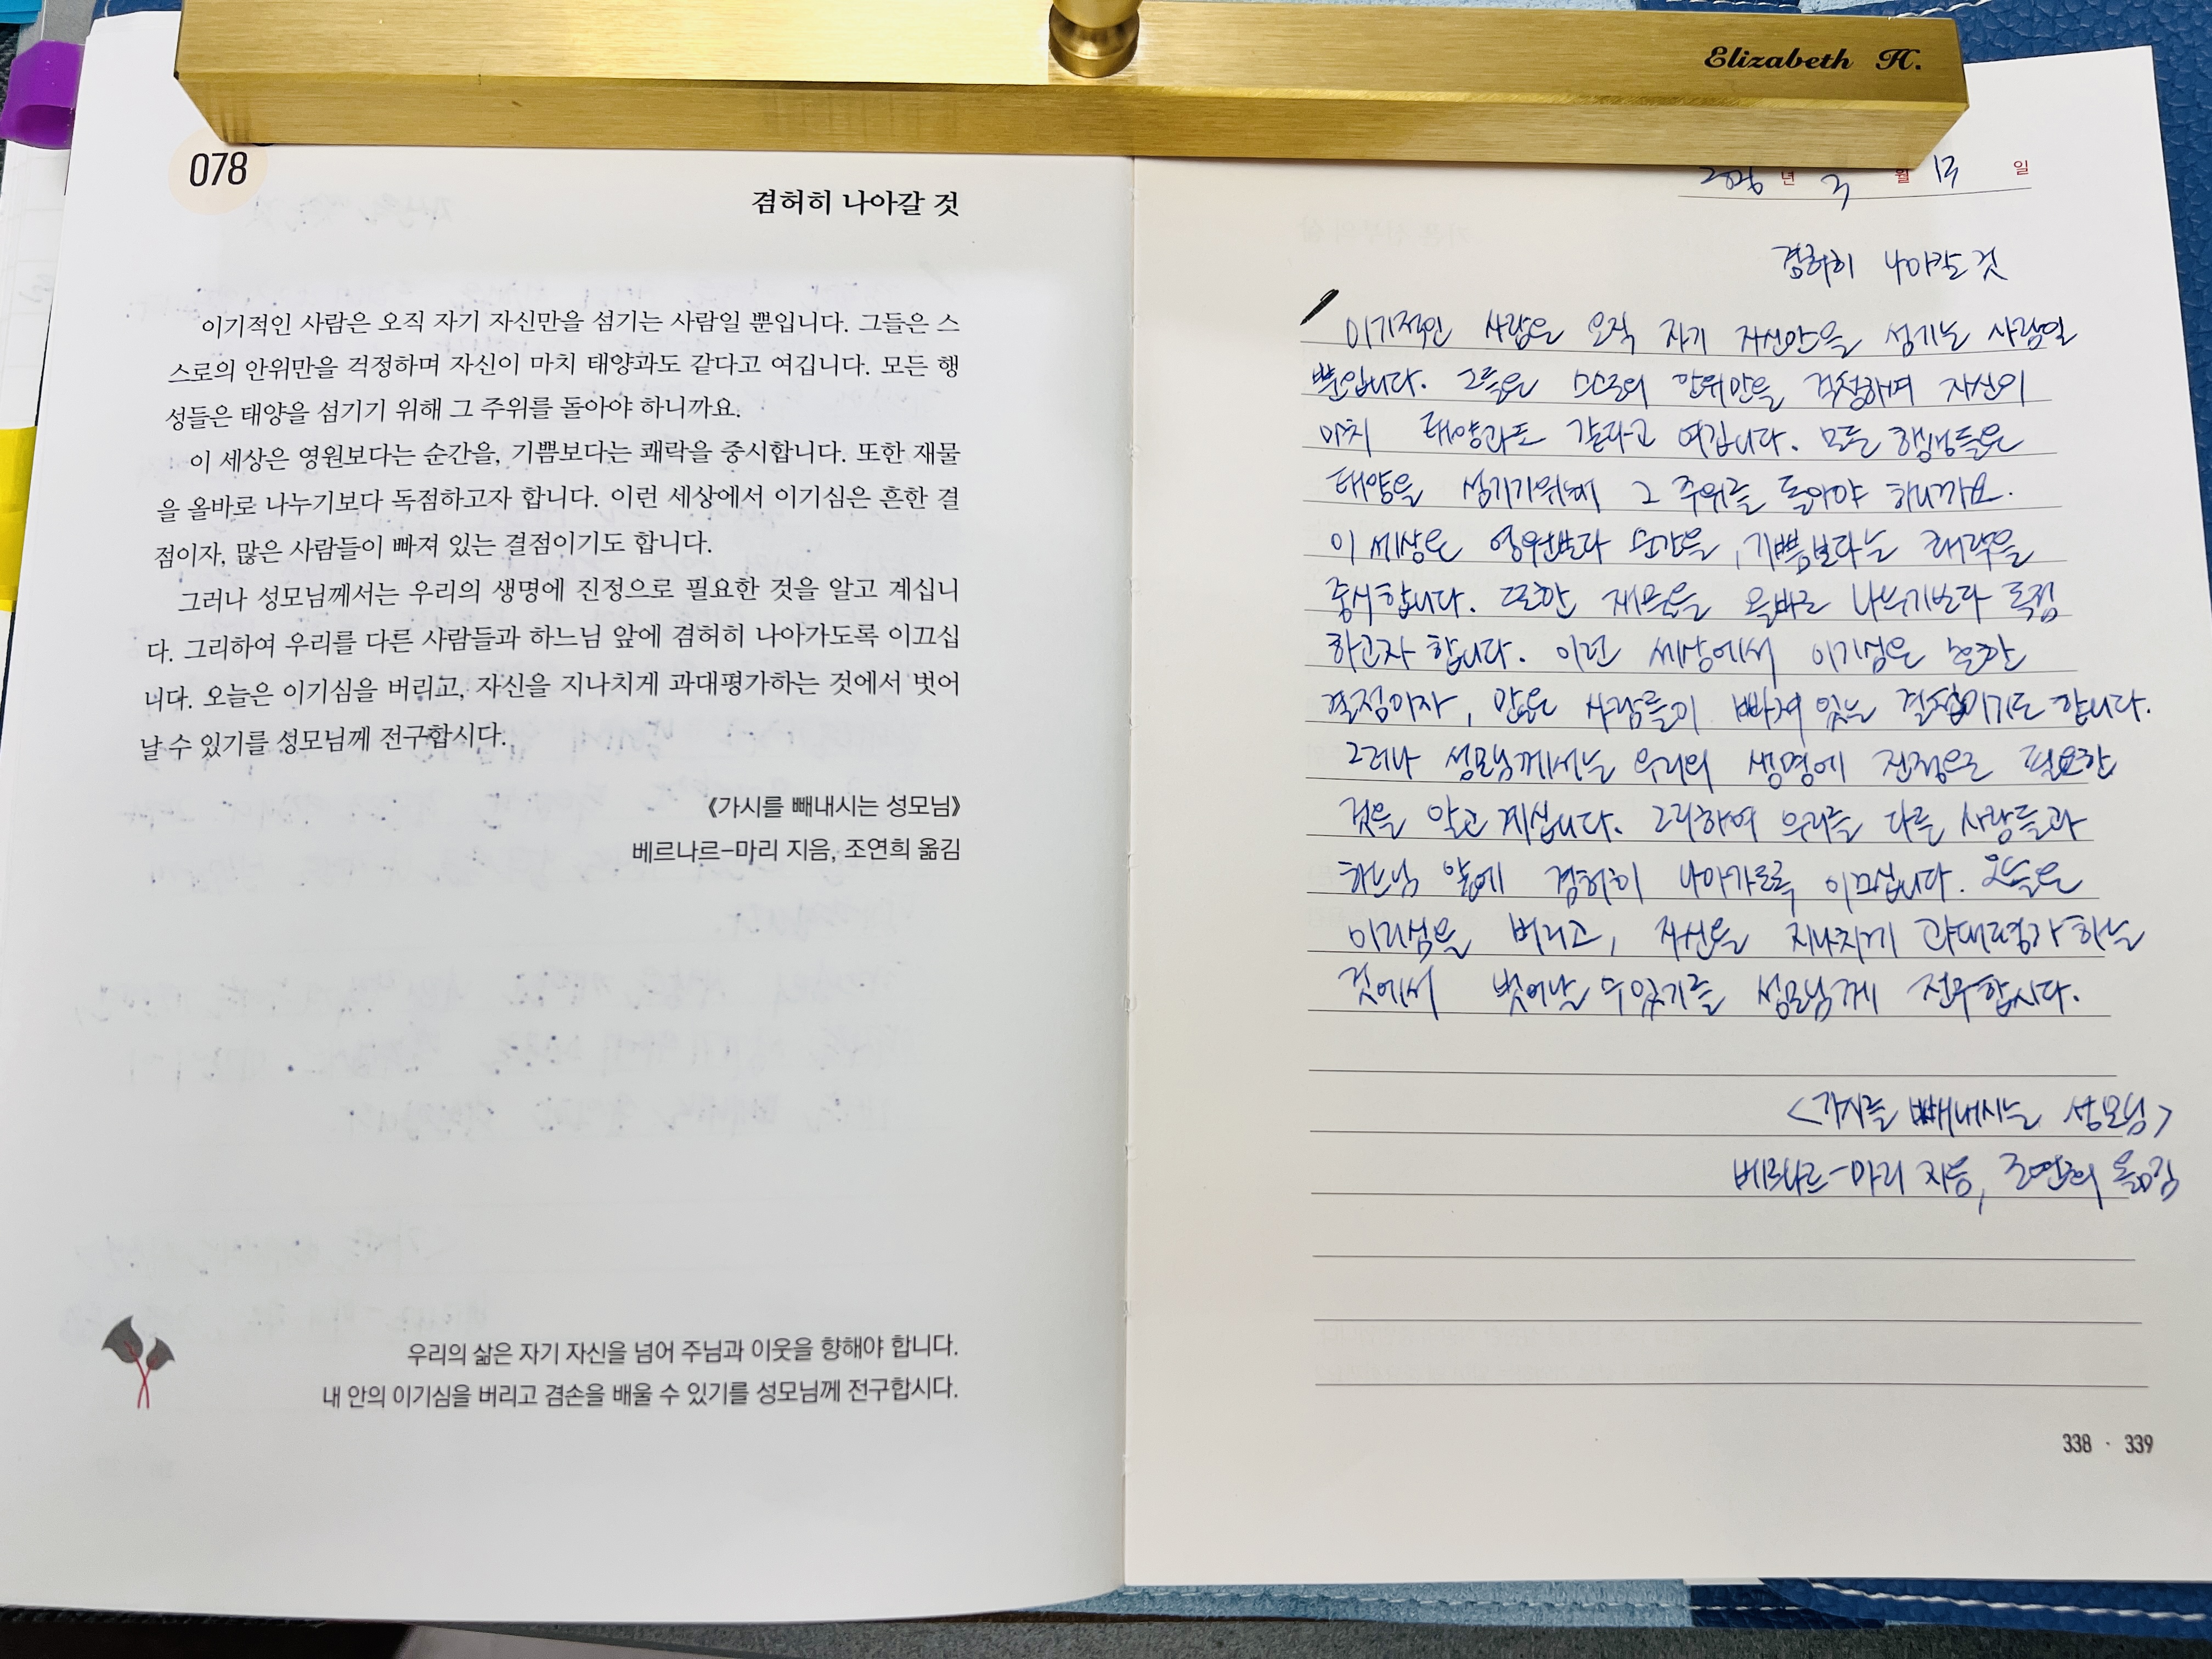 Elizabeth H.
078
겸허히 나아갈 것
이기적인 사람은 오직 자기 자신만을 섬기는 사람일 뿐입니다. 그들은 스
스로의 안위만을 걱정하며 자신이 마치 태양과도 같다고 여깁니다. 모든 행
성들은 태양을 섬기기 위해 그 주위를 돌아야 하니까요.
이 세상은 영원보다는 순간을, 기쁨보다는 쾌락을 중시합니다. 또한 재물
을 올바로 나누기보다 독점하고자 합니다. 이런 세상에서 이기심은 흔한 결
점이자, 많은 사람들이 빠져 있는 결점이기도 합니다.
그러나 성모님께서는 우리의 생명에 진정으로 필요한 것을 알고 계십니
다. 그리하여 우리를 다른 사람들과 하느님 앞에 겸허히 나아가도록 이끄십
니다. 오늘은 이기심을 버리고, 자신을 지나치게 과대평가하는 것에서 벗어
날 수 있기를 성모님께 전구합시다.
《가시를 빼내시는 성모님》
베르나르-마리 지음, 조연희 옮김
우리의 삶은 자기 자신을 넘어 주님과 이웃을 향해야 합니다.
내 안의 이기심을 버리고 겸손을 배울 수 있기를 성모님께 전구합시다.
2026 년 3 월 13 일
겸허히 나아갈 것
이기적인 사람은 오직 자기 자신만을 섬기는 사람일
뿐입니다. 그들은 스스로의 안위만을 걱정하며 자신이
마치 태양과도 같다고 여깁니다. 모든 행성들은
태양을 섬기기위해 그 주위를 돌아야 하니까요.
이 세상은 영원보다 순간을, 기쁨보다는 쾌락을
중시합니다. 또한 재물을 올바로 나누기보다 독점
하고자 합니다. 이런 세상에서 이기심은 흔한
결점이자, 많은 사람들이 빠져 있는 결점이기도 합니다.
그러나 성모님께서는 우리의 생명에 진정으로 필요한
것을 알고 계십니다. 그리하여 우리를 다른 사람들과
하느님 앞에 겸허히 나아가도록 이끄십니다. 오늘은
버리고, 자신을 지나치게 과대평가 하는
것에서 벗어날 수있기를 성모님께 전구합시다.
<가시를 빼내시는 성모님>
베르나르-마리 지음, 조연희 옮김
338 · 339